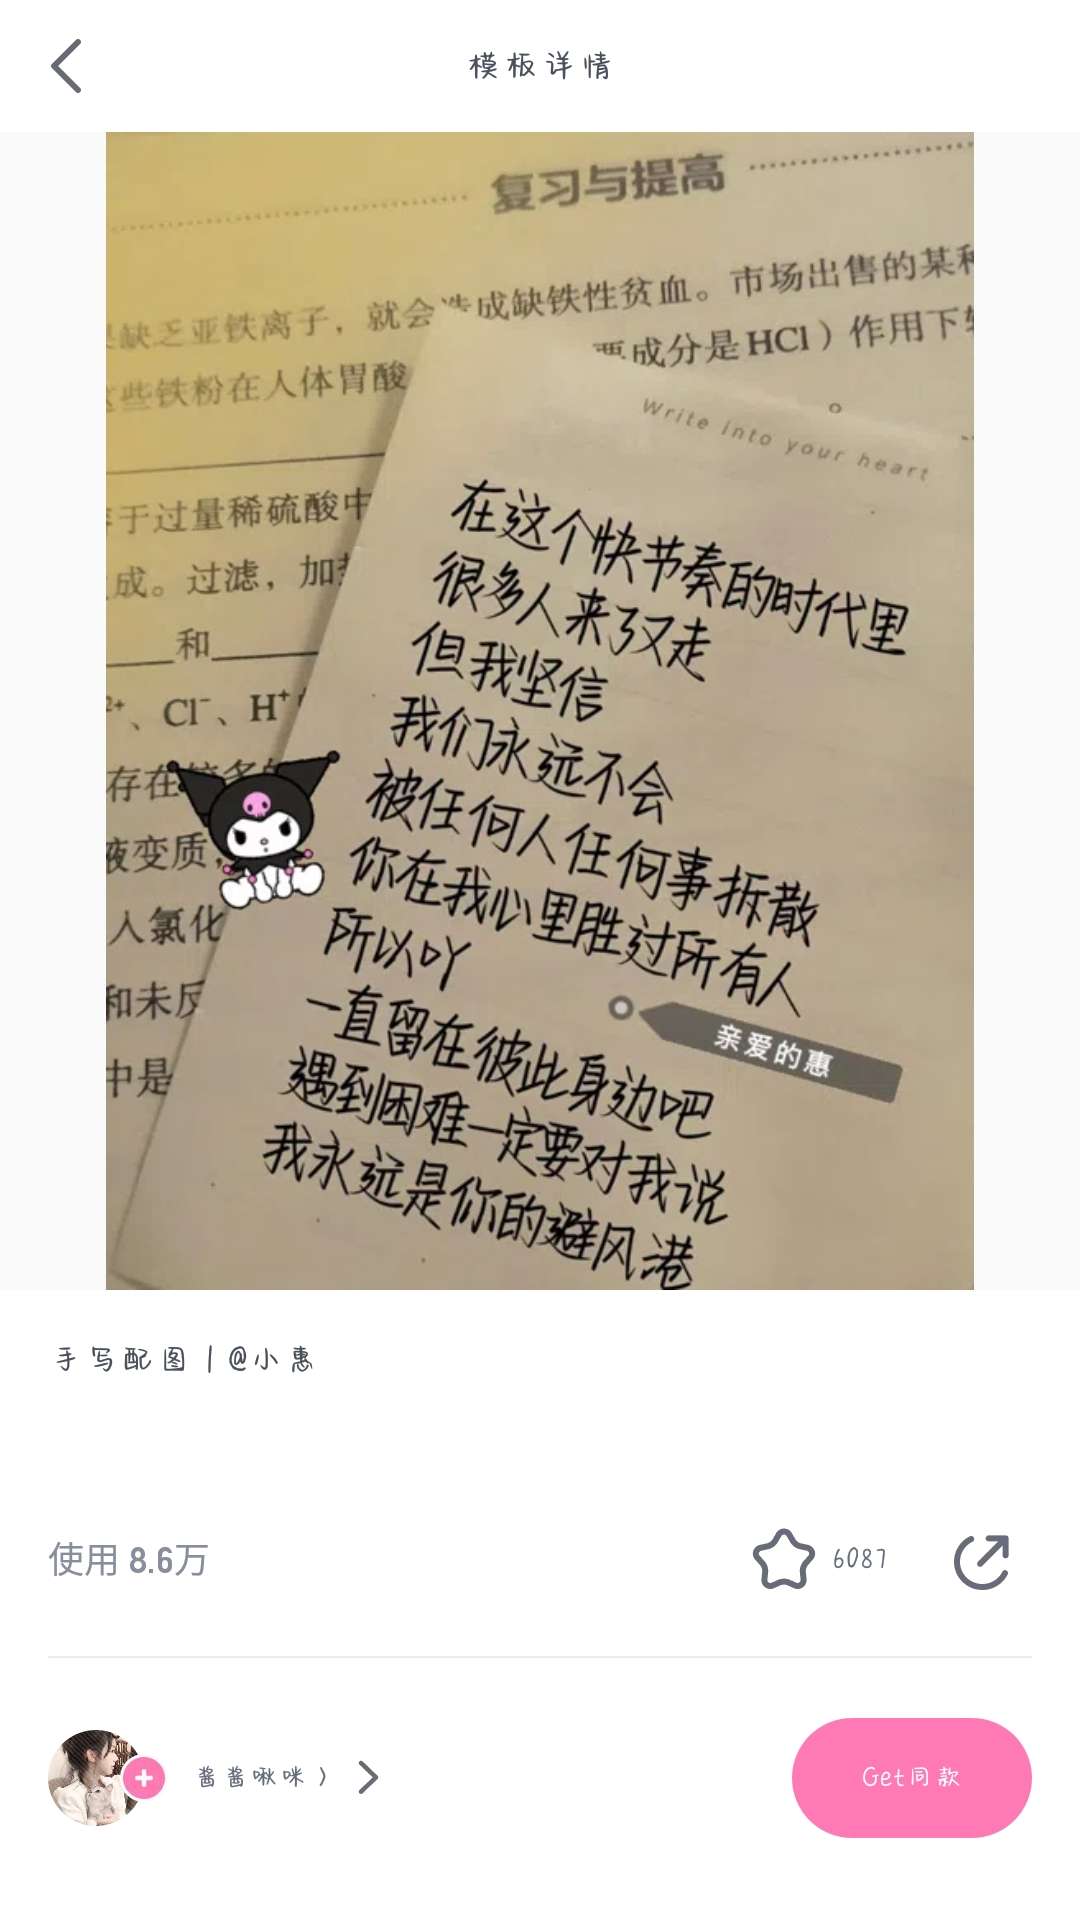 模板详情
复习与提高
缺乏亚铁离子，就会造成缺铁性贫血。市场出售的某种
这些铁粉在人体胃酸
要成分是HCl）作用下转
Write into your heart
于过量稀硫酸中
成。过滤，加热
和
Cl⁻、H⁺
存在较多的
液变质，
人氯化
和未反
中是
在这个快节奏的时代里
很多人来了又走
但我坚信
我们永远不会
被任何人任何事拆散
你在我心里胜过所有人
所以吖
一直留在彼此身边吧
遇到困难一定要对我说
我永远是你的避风港
亲爱的惠
手写配图丨@小惠
使用 8.6万
6087
酱酱啾咪〉
Get同款